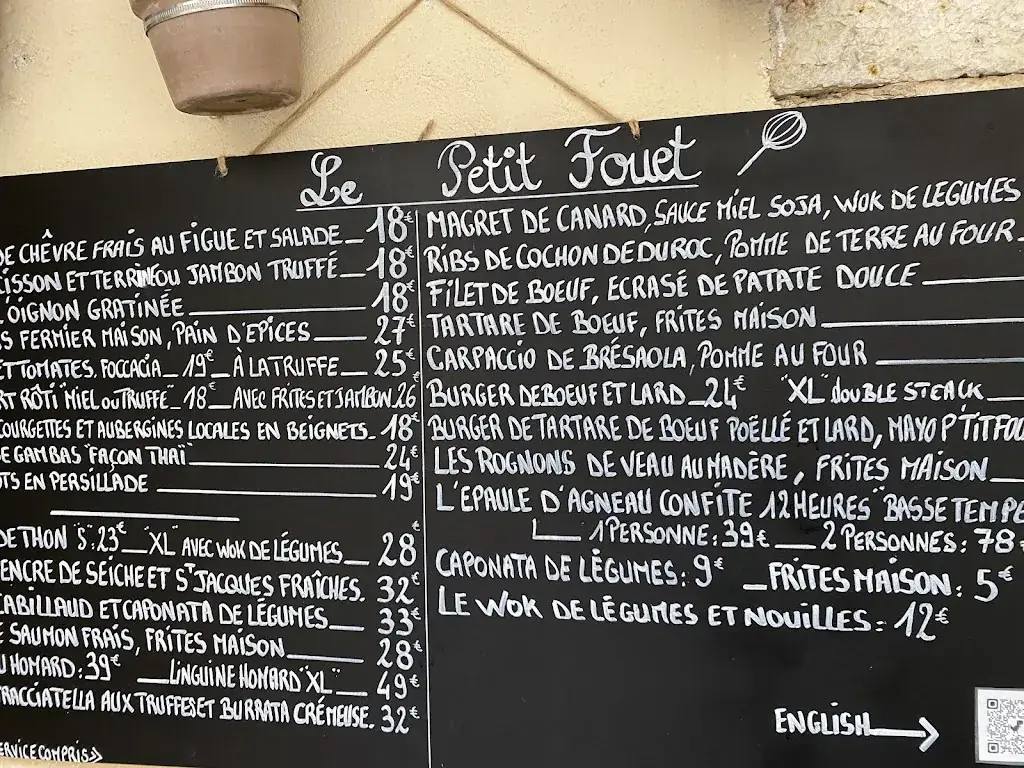 Le Petit Fouet
DE CHÊVRE FRAIS AU FIGUE ET SALADE_ 18€
ET TERRINE OU JAMBON TRUFFÉ_ 18€
OIGNON GRATINÉE 18€
FERMIER MAISON, PAIN D'EPICES 27€
ET TOMATES. FOCCACIA _ 19€_ À LA TRUFFE 25€
RÔTI MIEL ou TRUFFE_ 18€_ AVEC FRITES ET JAMBON 26
COURGETTES ET AUBERGINES LOCALES EN BEIGNETS_ 18€
GAMBAS "FAÇON THAÏ" 24€
EN PERSILLADE 19€
DE THON "S": 23€_ "XL" AVEC WOK DE LÉGUMES_ 28€
ENCRE DE SEICHE ET ST JACQUES FRAÎCHES. 32€
CABILLAUD ET CAPONATA DE LÉGUMES_ 33€
SAUMON FRAIS, FRITES MAISON 28€
HOMARD: 39€ _LINGUINE HOMARD "XL"_ 49€
AUX TRUFFES ET BURRATA CRÉMEUSE. 32€
SERVICE COMPRIS
MAGRET DE CANARD, SAUCE MIEL SOJA, WOK DE LEGUMES
RIBS DE COCHON DE DUROC, POMME DE TERRE AU FOUR_
FILET DE BOEUF, ECRASÉ DE PATATE DOUCE
TARTARE DE BOEUF, FRITES MAISON
CARPACCIO DE BRÉSAOLA, POMME AU FOUR
BURGER DE BOEUF ET LARD_ 24€ "XL" doUBLE STEACK
BURGER DE TARTARE DE BOEUF POËLLÉ ET LARD, MAYO P'TIT
LES ROGNONS DE VEAU AU MADÈRE, FRITES MAISON
L'EPAULE D'AGNEAU CONFITE 12 HEURES "BASSE TEMPE
1 PERSONNE: 39€ _ 2 PERSONNES: 78
CAPONATA DE LÉGUMES: 9€ _FRITES MAISON: 5€
LE WOK DE LÉGUMES ET NOUILLES: 12€
ENGLISH